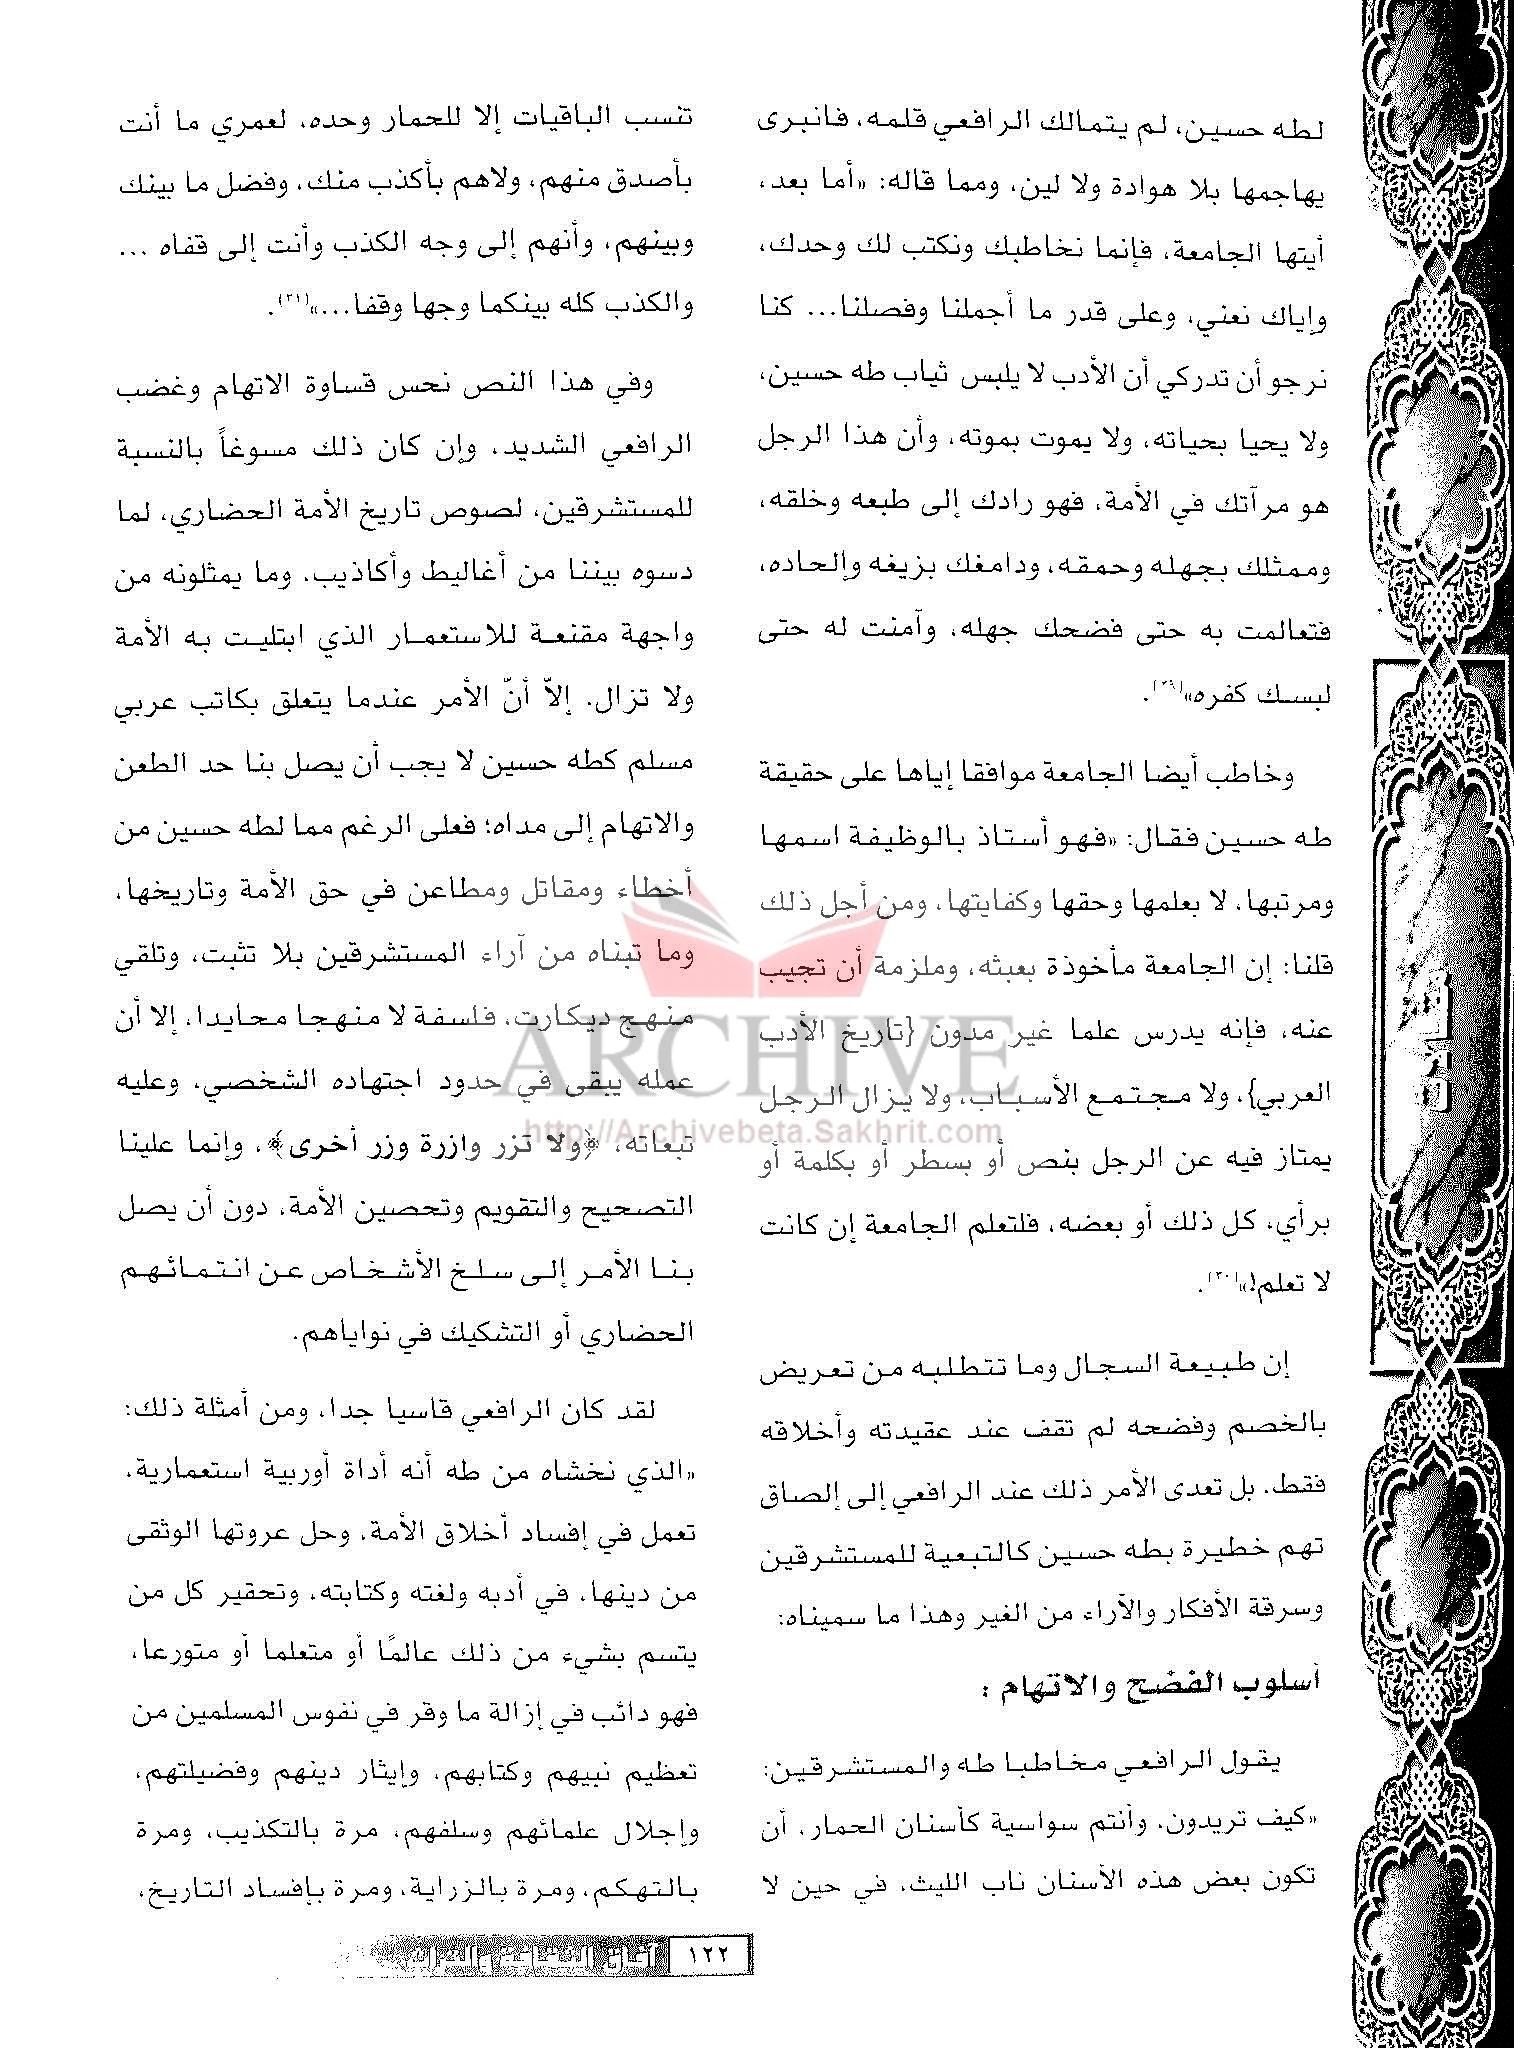 لطه حسين، لم يتمالك الرافعي قلمه، فانبرى
يهاجمها بلا هوادة ولا لين، ومما قاله: «أما بعد،
أيتها الجامعة، فإنما نخاطبك ونكتب لك وحدك،
وإياك نعني، وعلى قدر ما أجملنا وفصلنا... كنا
نرجو أن تدركي أن الأدب لا يلبس ثياب طه حسين،
ولا يحيا بحياته، ولا يموت بموته، وأن هذا الرجل
هو مرآتك في الأمة، فهو رادك إلى طبعه وخلقه،
وممثلك بجهله وحمقه، ودامغك بزيغه وإلحاده،
فتعالمت به حتى فضحك جهله، وآمنت له حتى
لبسك كفره»(٢٩).
وخاطب أيضا الجامعة موافقا إياها على حقيقة
طه حسين فقال: «فهو أستاذ بالوظيفة اسمها
ومرتبها، لا بعلمها وحقها وكفايتها، ومن أجل ذلك
قلنا: إن الجامعة مأخوذة بعبثه، وملزمة أن تجيب
عنه، فإنه يدرس علما غير مدون {تاريخ الأدب
العربي}، ولا مجتمع الأسباب، ولا يزال الرجل
يمتاز فيه عن الرجل بنص أو بسطر أو بكلمة أو
برأي، كل ذلك أو بعضه، فلتعلم الجامعة إن كانت
لا تعلم!»(٣٠).
إن طبيعة السجال وما تتطلبه من تعريض
بالخصم وفضحه لم تقف عند عقيدته وأخلاقه
فقط، بل تعدى الأمر ذلك عند الرافعي إلى إلصاق
تهم خطيرة بطه حسين كالتبعية للمستشرقين
وسرقة الأفكار والآراء من الغير وهذا ما سميناه:
أسلوب الفضح والاتهام :
يقول الرافعي مخاطبا طه والمستشرقين:
«كيف تريدون، وأنتم سواسية كأسنان الحمار، أن
تكون بعض هذه الأسنان ناب الليث، في حين لا
تنسب الباقيات إلا للحمار وحده، لعمري ما أنت
بأصدق منهم، ولاهم بأكذب منك، وفضل ما بينك
وبينهم، وأنهم إلى وجه الكذب وأنت إلى قفاه ...
والكذب كله بينكما وجها وقفا...»(٣١).
وفي هذا النص نحس قساوة الاتهام وغضب
الرافعي الشديد، وإن كان ذلك مسوغاً بالنسبة
للمستشرقين، لصوص تاريخ الأمة الحضاري، لما
دسوه بيننا من أغاليط وأكاذيب، وما يمثلونه من
واجهة مقنعة للاستعمار الذي ابتليت به الأمة
ولا تزال. إلاّ أنّ الأمر عندما يتعلق بكاتب عربي
مسلم كطه حسين لا يجب أن يصل بنا حد الطعن
والاتهام إلى مداه؛ فعلى الرغم مما لطه حسين من
أخطاء ومقاتل ومطاعن في حق الأمة وتاريخها،
وما تبناه من آراء المستشرقين بلا تثبت، وتلقي
منهج ديكارت، فلسفة لا منهجا محايدا، إلا أن
عمله يبقى في حدود اجتهاده الشخصي، وعليه
تبعاته، ﴿ولا تزر وازرة وزر أخرى﴾، وإنما علينا
التصحيح والتقويم وتحصين الأمة، دون أن يصل
بنا الأمر إلى سلخ الأشخاص عن انتمائهم
الحضاري أو التشكيك في نواياهم.
لقد كان الرافعي قاسيا جدا، ومن أمثلة ذلك:
«الذي نخشاه من طه أنه أداة أوربية استعمارية،
تعمل في إفساد أخلاق الأمة، وحل عروتها الوثقى
من دينها، في أدبه ولغته وكتابته، وتحقير كل من
يتسم بشيء من ذلك عالمًا أو متعلما أو متورعا،
فهو دائب في إزالة ما وقر في نفوس المسلمين من
تعظيم نبيهم وكتابهم، وإيثار دينهم وفضيلتهم،
وإجلال علمائهم وسلفهم، مرة بالتكذيب، ومرة
بالتهكم، ومرة بالزراية، ومرة بإفساد التاريخ،
ARCHIVE
http://Archivebeta.Sakhrit.com
١٢٢ آفاق الثقافة والتراث